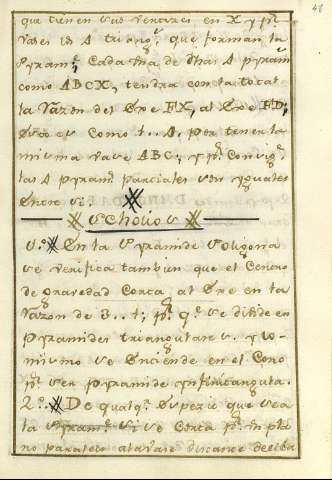 48
que tienen sus vertices en X y pr.
vases los 4 triang.s que forman la
Pyram.e Cada una de dhas 4 Pyram.s
como ABCX, tendra con la total
la razon del Exe FX, al Exe FD,
esto es como 1..4, por tener la
misma vase ABC; y pr. consig.te
las 4 Pyram.s parciales son yguales
entre si.
Scholios
1.o En la Pyramide Poligona
se verifica tambien que el Centro
de Gravedad corta al Exe en la
razon de 3..1; pr. q.e se divide en
Pyramides triangulares. y lo
mismo se entiende en el Cono
pr. ser Pyramide ynfinitangula.
2.o De qualq.r especie que sea
la Pyram.e si se corta pr. un pla
no paralelo a la vase distante de ella